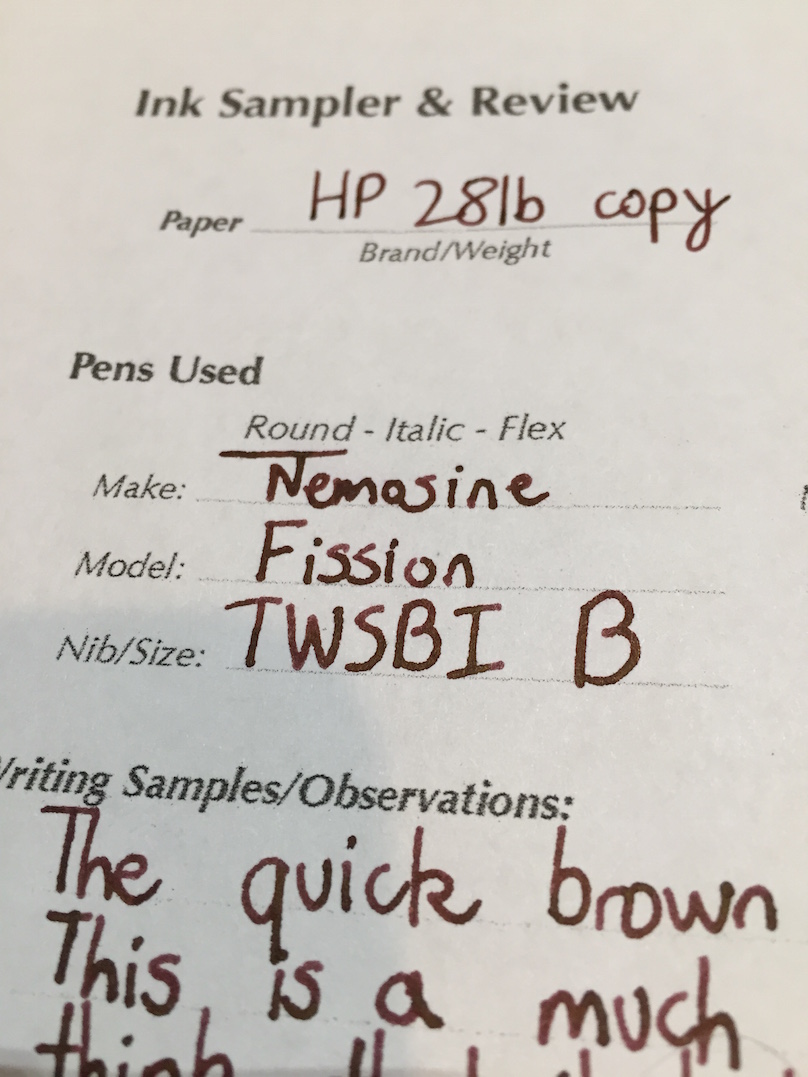 Ink Sampler & Review
Paper HP 28lb copy
Brand/Weight
Pens Used
Round - Italic - Flex
Make: Nemosine
Model: Fission
Nib/Size: TWSBI B
Writing Samples/Observations:
The quick brown
This is a much
think